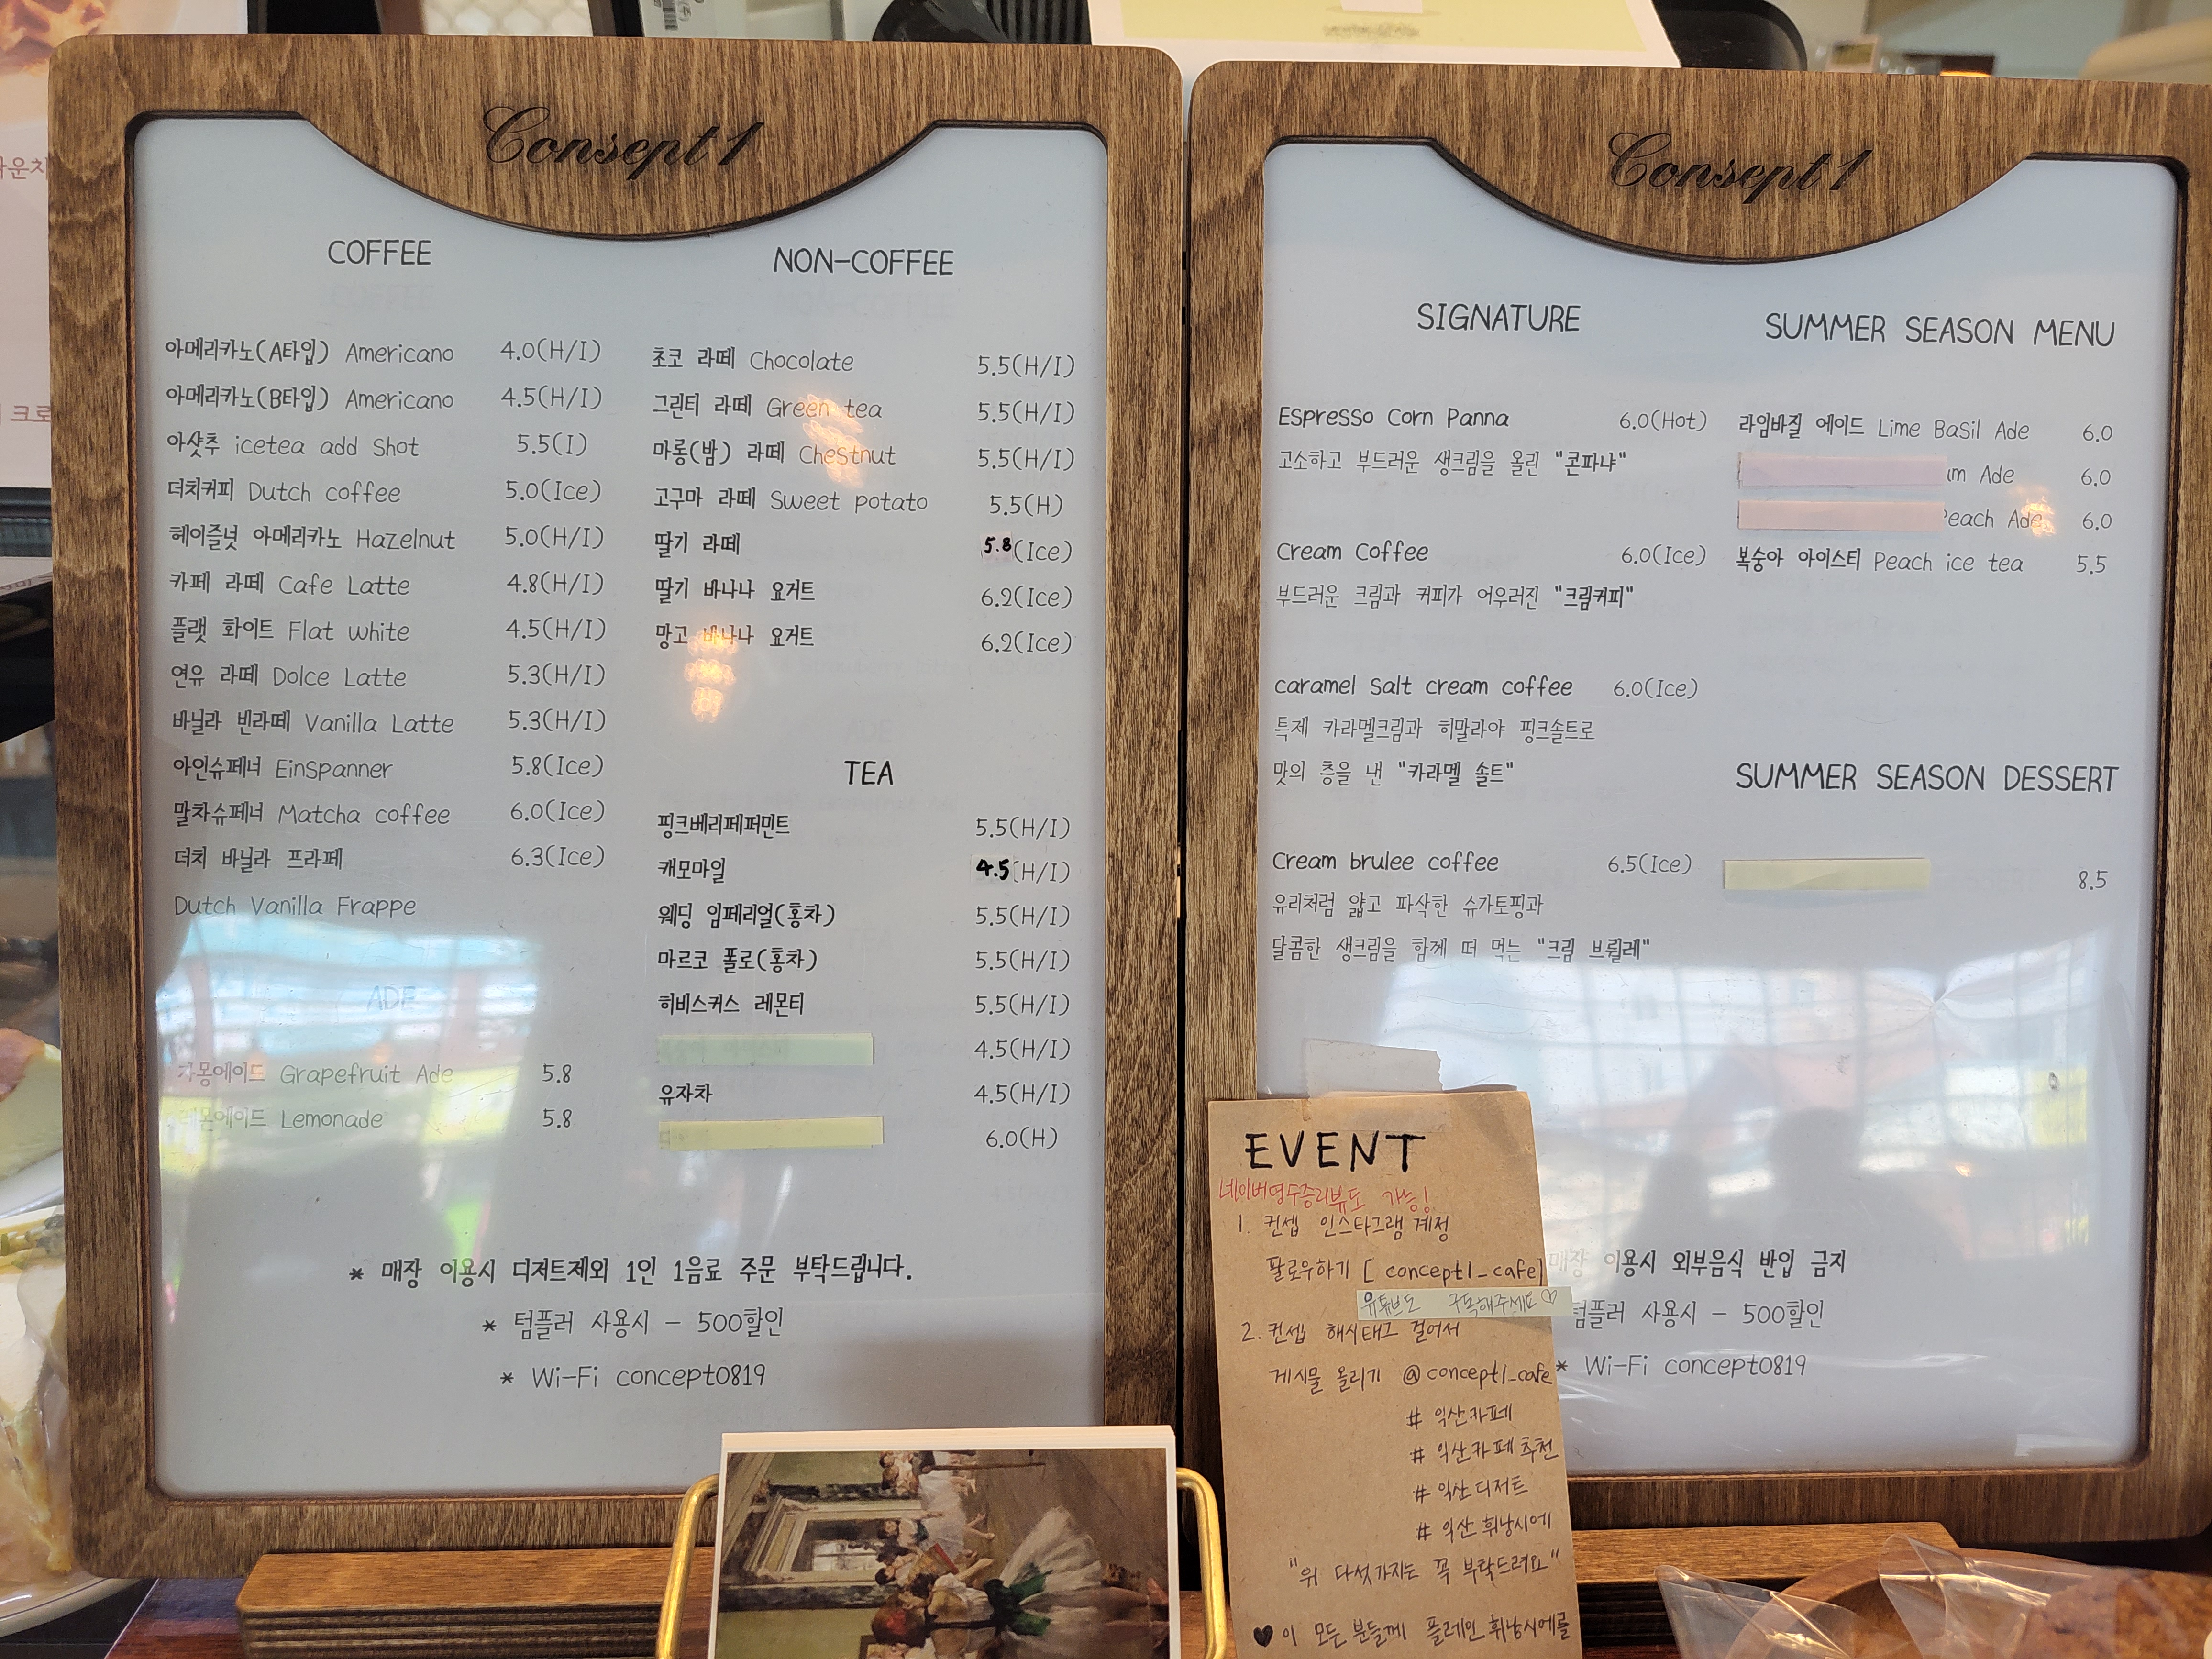 Consept 1
COFFEE
아메리카노(A타입) Americano 4.0(H/I)
아메리카노(B타입) Americano 4.5(H/I)
아샷추 icetea add Shot 5.5(I)
더치커피 Dutch coffee 5.0(Ice)
헤이즐넛 아메리카노 Hazelnut 5.0(H/I)
카페 라떼 Cafe Latte 4.8(H/I)
플랫 화이트 Flat white 4.5(H/I)
연유 라떼 Dolce Latte 5.3(H/I)
바닐라 빈라떼 Vanilla Latte 5.3(H/I)
아인슈페너 Einspanner 5.8(Ice)
말차슈페너 Matcha coffee 6.0(Ice)
더치 바닐라 프라페 6.3(Ice)
Dutch Vanilla Frappe
ADE
자몽에이드 Grapefruit Ade 5.8
레몬에이드 Lemonade 5.8
NON-COFFEE
초코 라떼 Chocolate 5.5(H/I)
그린티 라떼 Green tea 5.5(H/I)
마롱(밤) 라떼 Chestnut 5.5(H/I)
고구마 라떼 Sweet potato 5.5(H)
딸기 라떼 5.8(Ice)
딸기 바나나 요거트 6.2(Ice)
망고 바나나 요거트 6.2(Ice)
TEA
핑크베리페퍼민트 5.5(H/I)
캐모마일 4.5(H/I)
웨딩 임페리얼(홍차) 5.5(H/I)
마르코 폴로(홍차) 5.5(H/I)
히비스커스 레몬티 5.5(H/I)
4.5(H/I)
유자차 4.5(H/I)
6.0(H)
* 매장 이용시 디저트제외 1인 1음료 주문 부탁드립니다.
* 텀플러 사용시 - 500할인
* Wi-Fi concept0819
Consept 1
SIGNATURE
Espresso Corn Panna 6.0(Hot)
고소하고 부드러운 생크림을 올린 "콘파냐"
Cream Coffee 6.0(Ice)
부드러운 크림과 커피가 어우러진 "크림커피"
caramel Salt cream coffee 6.0(Ice)
특제 카라멜크림과 히말라야 핑크솔트로
맛의 층을 낸 "카라멜 솔트"
Cream brulee coffee 6.5(Ice)
유리처럼 얇고 파삭한 슈가토핑과
달콤한 생크림을 함께 떠 먹는 "크림 브륄레"
SUMMER SEASON MENU
라임바질 에이드 Lime Basil Ade 6.0
um Ade 6.0
Peach Ade 6.0
복숭아 아이스티 Peach ice tea 5.5
SUMMER SEASON DESSERT
8.5
매장 이용시 외부음식 반입 금지
텀플러 사용시 - 500할인
* Wi-Fi concept0819
EVENT
네이버영수증리뷰도 가능!
1. 컨셉 인스타그램 계정
팔로우하기 [ concept1_cafe]
유튜브도 구독해주세요♡
2. 컨셉 해시태그 걸어서
게시물 올리기 @concept1_cafe
# 익산카페
# 익산카페추천
# 익산디저트
# 익산휘낭시에
"위 다섯가지는 꼭 부탁드려요"
♥ 이 모든분들께 플레인휘낭시에를